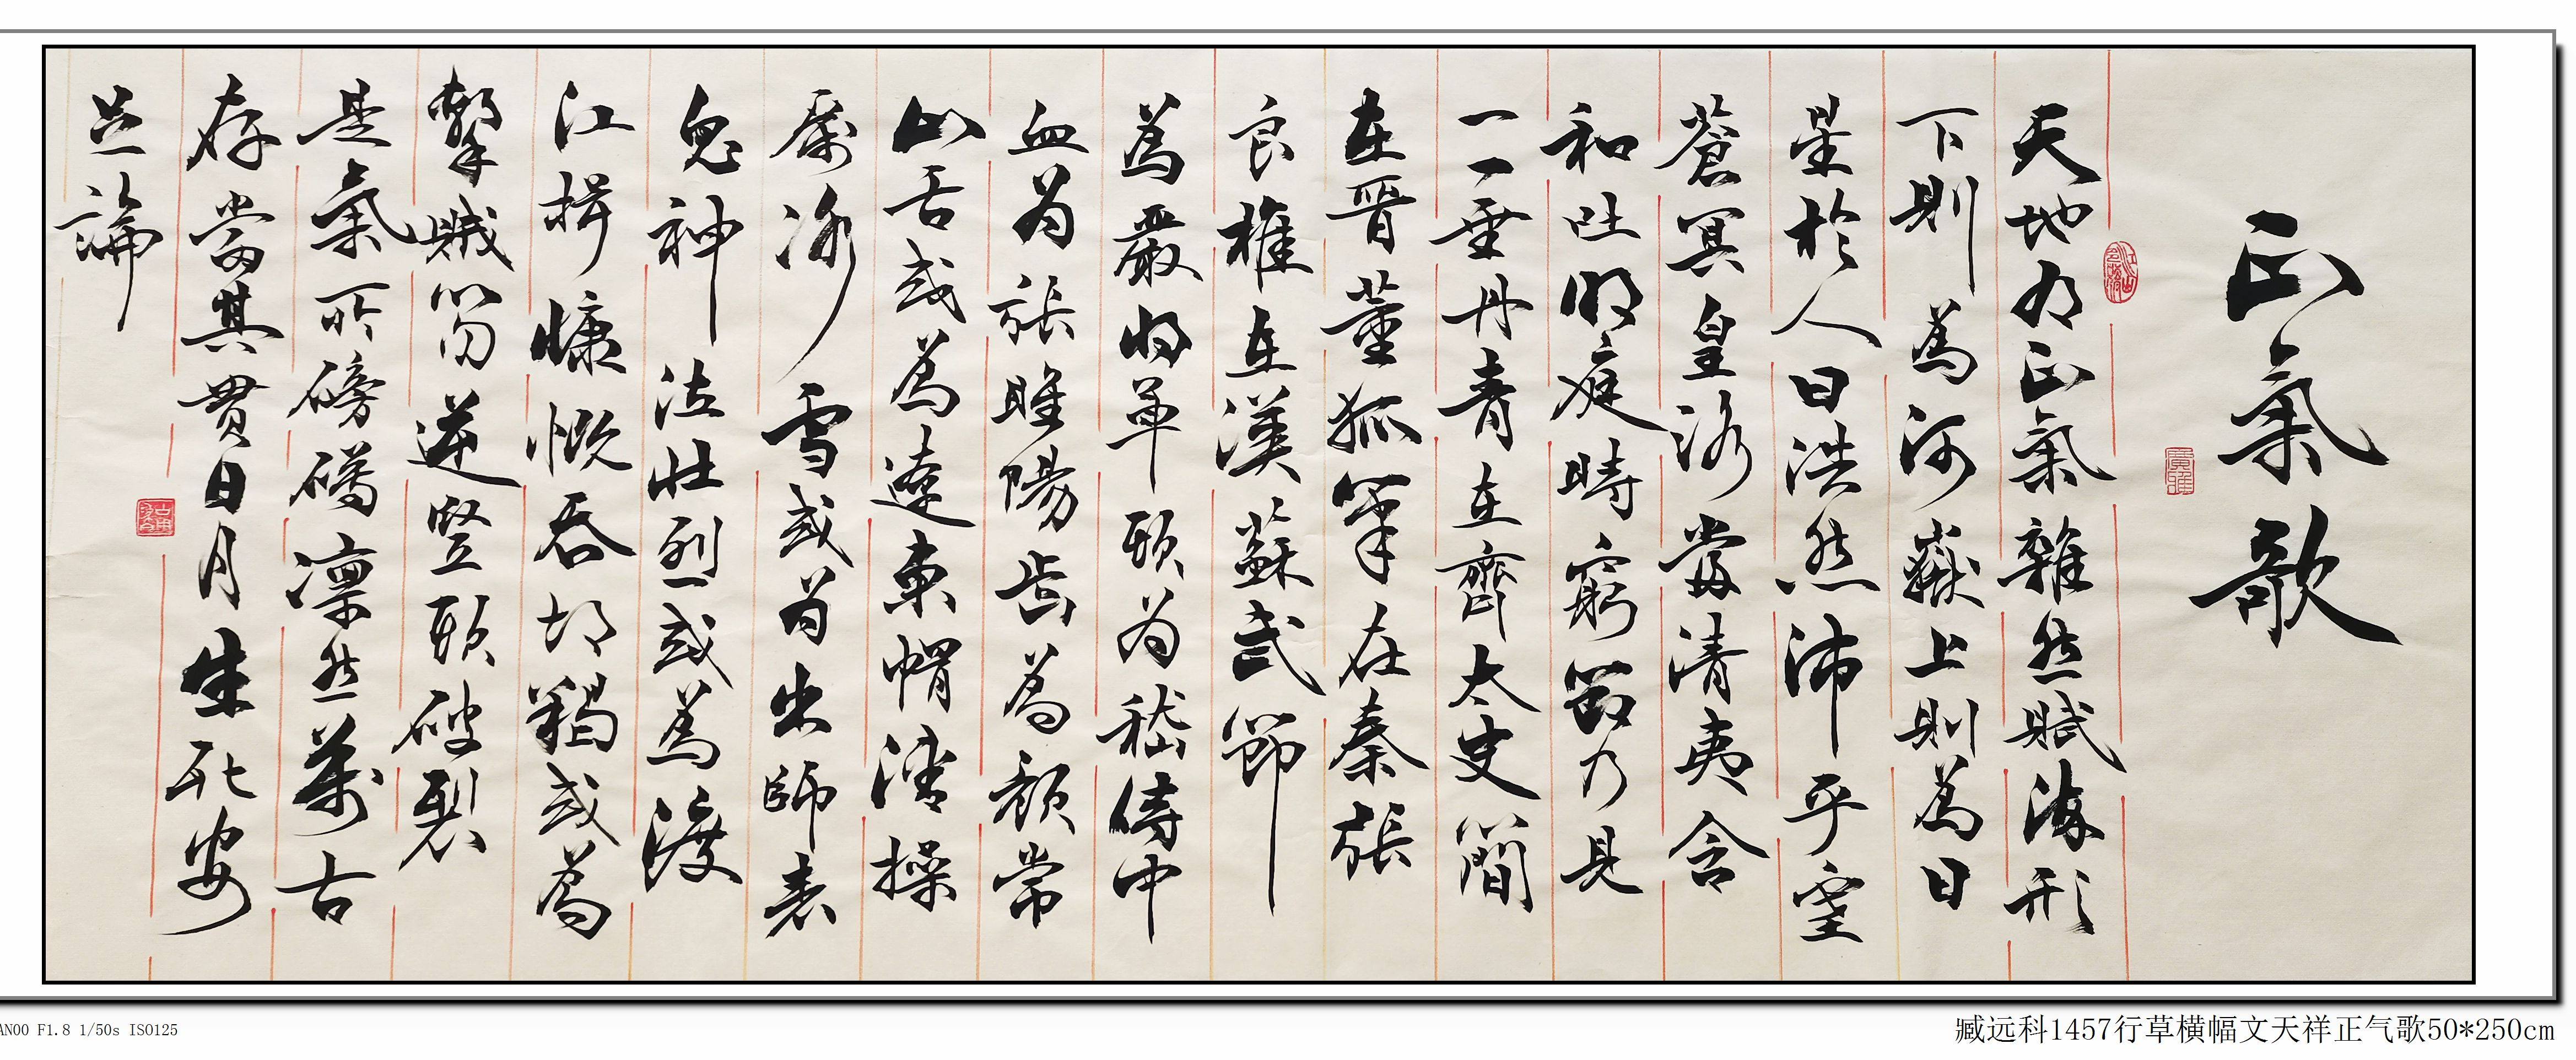 正氣歌
天地有正氣雜然賦流形
下則為河嶽上則為日
星於人曰浩然沛乎塞
蒼冥皇路當清夷含
和吐明庭時窮節乃見
一一垂丹青在齊太史簡
在晉董狐筆在秦張
良椎在漢蘇武節
為嚴將軍頭為嵇侍中
血為張睢陽齒為顏常
山舌或為遼東帽清操
厲冰雪或為出師表
鬼神泣壯烈或為渡
江楫慷慨吞胡羯或為
擊賊笏逆豎頭破裂
是氣所磅礴凜然萬古
存當其貫日月生死安
足論
AN00 F1.8 1/50s ISO125
臧远科1457行草横幅文天祥正气歌50*250cm